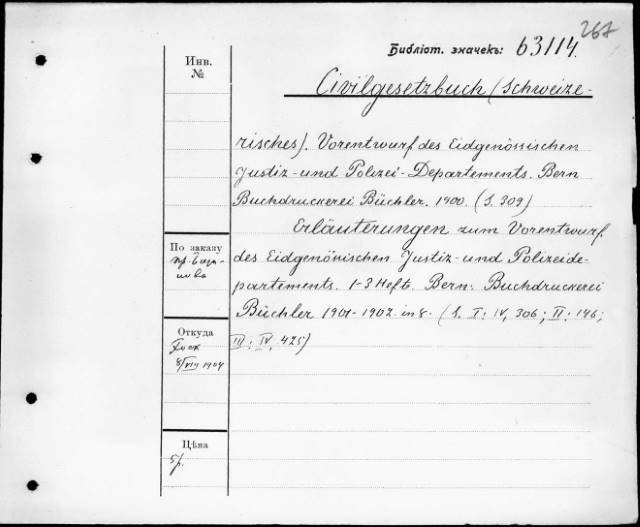 267
Библіот. значекъ: 63114.
Инв.
№
Civilgesetzbuch (Schweize-
risches). Vorentwurf des Eidgenössischen
Justiz- und Polizei-Departements. Bern
Buchdruckerei Büchler. 1900. (S. 309)
Erläuterungen zum Vorentwurf
des Eidgenössischen Justiz- und Polizeide-
partements. 1-3 Heft. Bern. Buchdruckerei
Büchler 1901-1902. in 8. (S. I: IV, 306; II: 146;
III: IV, 425)
По заказу
пр.
Откуда
8/VII 1904
Цѣна
5 р.